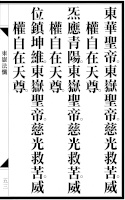 東華聖帝東嶽聖帝慈光救苦威
權自在天尊
炁應青陽東嶽聖帝慈光救苦威
權自在天尊
位鎮坤維東嶽聖帝慈光救苦威
權自在天尊
東嶽法懺